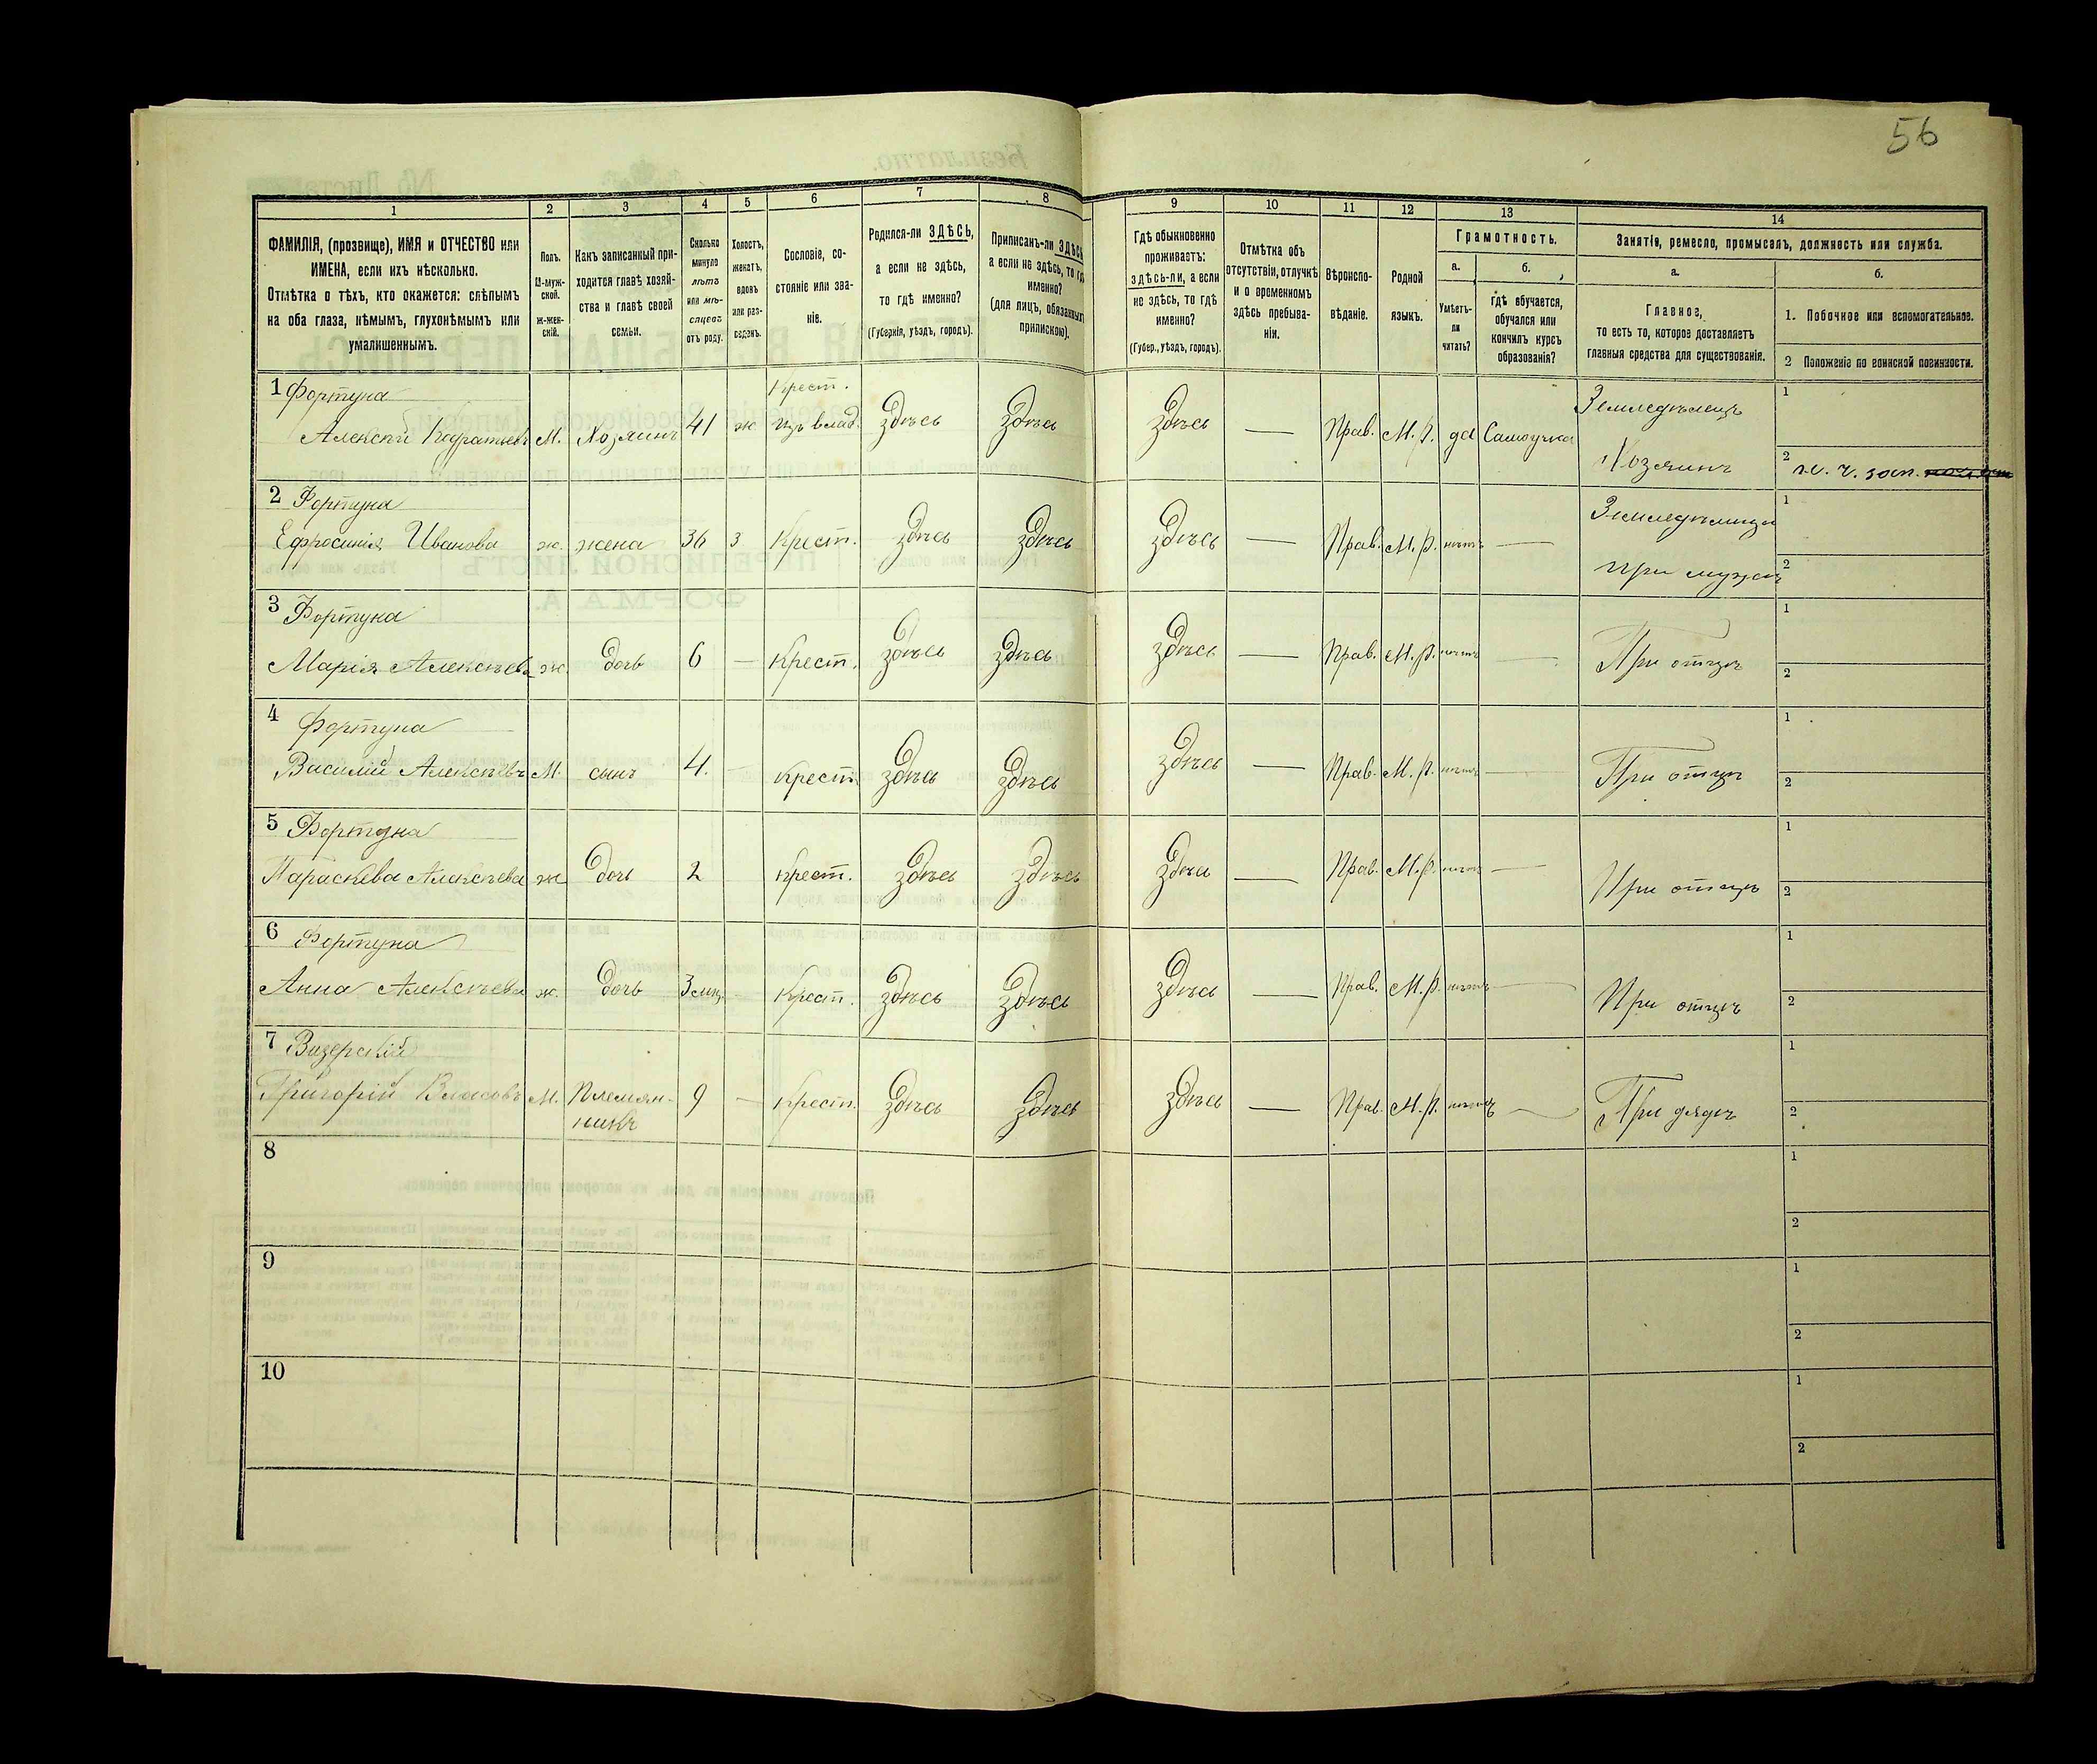 56
1
2
3
4
5
6
7
8
9
10
11
12
13
14
ФАМИЛІЯ, (прозвище), ИМЯ и ОТЧЕСТВО или
ИМЕНА, если ихъ нѣсколько.
Отмѣтка о тѣхъ, кто окажется: слѣпымъ
на оба глаза, нѣмымъ, глухонѣмымъ или
умалишеннымъ.
Полъ.
М-муж-
ской.
ж-жен-
скій.
Какъ записанный при-
ходится главѣ хозяй-
ства и главѣ своей
семьи.
Сколько
минуло
лѣтъ
или мѣ-
сяцевъ
отъ роду.
Холостъ,
женатъ,
вдовъ
или раз-
веденъ.
Сословіе, со-
стояніе или зва-
ніе.
Родился-ли ЗДѢСЬ,
а если не здѣсь,
то гдѣ именно?
(Губернія, уѣздъ, городъ).
Приписанъ-ли ЗДѢСЬ
а если не здѣсь, то гдѣ
именно?
(для лицъ, обязанныхъ
припискою).
Гдѣ обыкновенно
проживаетъ:
здѣсь-ли, а если
не здѣсь, то гдѣ
именно?
(Губер., уѣздъ, городъ).
Отмѣтка объ
отсутствіи, отлучкѣ
и о временномъ
здѣсь пребыва-
ніи.
Вѣроиспо-
вѣданіе.
Родной
языкъ.
Грамотность.
а.
б.
Умѣетъ-
ли
читать?
гдѣ обучается,
обучался или
кончилъ курсъ
образованія?
Занятіе, ремесло, промыселъ, должность или служба.
а.
б.
Главное,
то есть то, которое доставляетъ
главныя средства для существованія.
1. Побочное или вспомогательное.
2 Положеніе по воинской повинности.
1 Фортуна Крест. Земледѣлецъ 1
Алексѣй Кодратьевъ М. Хозяинъ 41 ж изъ влад. здѣсь здѣсь здѣсь — Прав. М. р. да Самоучка
Хозяинъ 2 н. ч. зап.
2 Фортуна Земледѣлица 1
Ефросинія Иванова ж. жена 36 з Крест. здѣсь здѣсь здѣсь — Прав. М. р. нѣтъ —
при мужѣ 2
3 Фортуна 1
Марія Алексѣева ж. дочь 6 — Крест. здѣсь здѣсь здѣсь — Прав. М. р. нѣтъ — При отцѣ 2
4 Фортуна 1
Василій Алексѣевъ М. сынъ 4. — Крест. здѣсь здѣсь здѣсь — Прав. М. р. нѣтъ — При отцѣ 2
5 Фортуна 1
Параскева Алексѣева ж дочь 2 Крест. здѣсь здѣсь здѣсь — Прав. М. р. нѣтъ — При отцѣ 2
6 Фортуна 1
Анна Алексѣева ж. дочь 3 мѣц. — Крест. здѣсь здѣсь здѣсь — Прав. М. р. нѣтъ — При отцѣ 2
7 1
Григорій Власовъ М. Племян- 9 — Крест. здѣсь здѣсь здѣсь — Прав. М. р. нѣтъ — При дядѣ 2
никъ
8 1
2
9 1
2
10 1
2